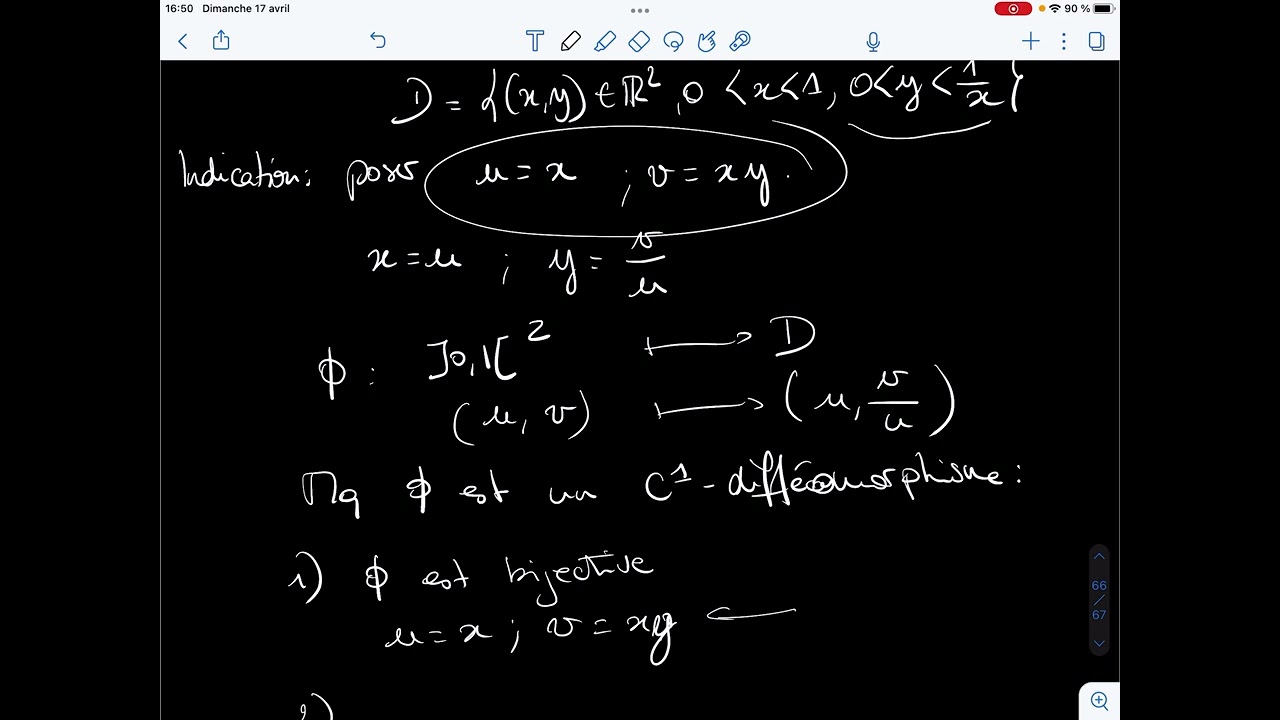 16:50 Dimanche 17 avril
90 %
D = {(x,y) ∈ ℝ², 0 < x < 1, 0 < y < 1/x}
Indication: poser u = x ; v = xy.
x = u ; y = v/u
ϕ : ]0,1[² ⟼ D
(u, v) ⟼ (u, v/u)
Mq ϕ est un C¹-difféomorphisme:
1) ϕ est bijective
u = x ; v = xy ←
66
/
67
2)